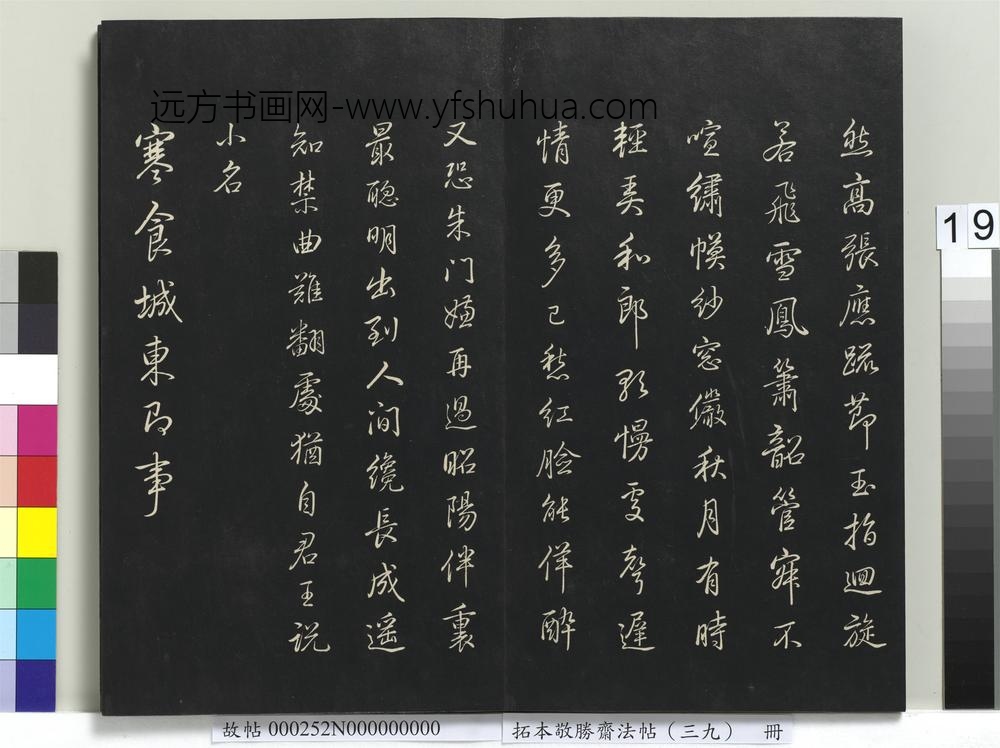 远方书画网-www.yfshuhua.com
然高張應踈節玉指迴旋
若飛雪鳳簫韶管寂不
喧繡幙紗窓儼秋月有時
輕弄和郎歌慢處聲遲
情更多已愁紅臉能佯醉
又恐朱門嫌再過昭陽伴裏
最聰明出到人間纔長成遥
知禁曲難翻處猶自君王説
小名
寒食城東即事
19
故帖 000252N000000000
拓本敬勝齋法帖（三九） 冊